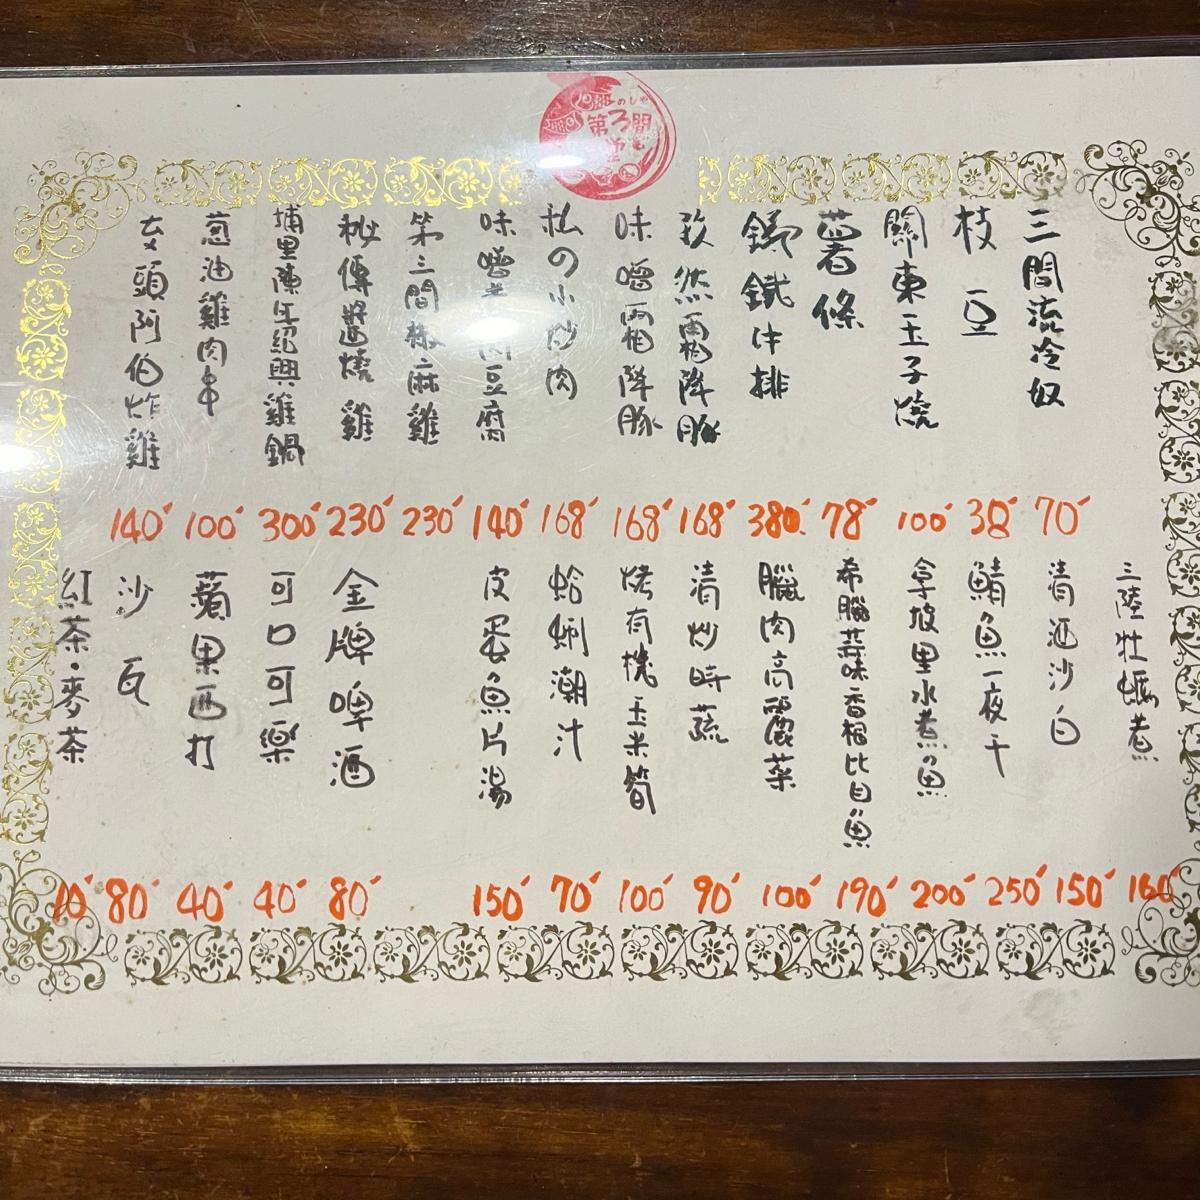 のしや
第3間
三間流冷奴 70
枝豆 38
關東玉子燒 100
薯條 78
鑄鐵牛排 380
孜然霜降豚 168
味噌霜降豚 168
私の小炒肉 168
味噌 肉豆腐 140
第三間椒麻雞 230
秘傳醬燒雞 230
埔里陳年紹興雞鍋 300
蔥油雞肉串 100
頭阿伯炸雞 140
三陸牡蠣煮 160
清酒沙白 150
鯖魚一夜干 250
拿坡里水煮魚 200
希臘蒜味香榭比目魚 190
臘肉高麗菜 100
清炒時蔬 90
烤有機玉米筍 100
蛤蜊潮汁 70
皮蛋魚片湯 150
金牌啤酒 80
可口可樂 40
蘋果西打 40
沙瓦 80
紅茶・麥茶 10